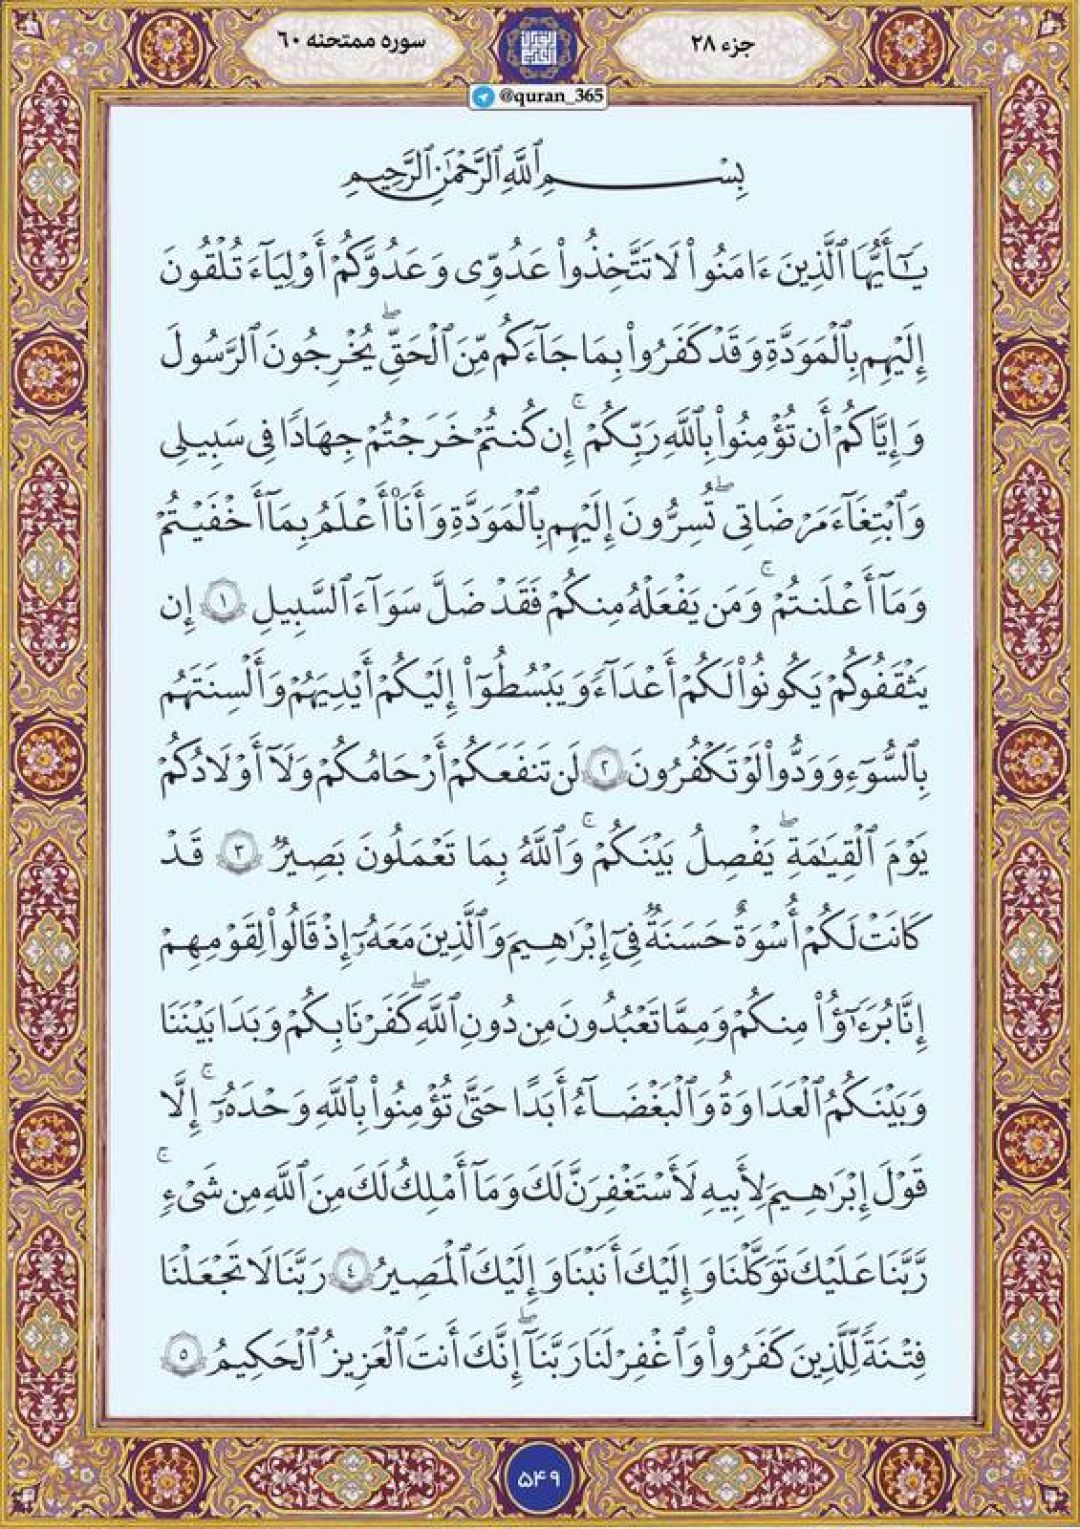 جزء ۲۸
سوره ممتحنه ۶۰
@quran_365
بِسْمِ ٱللَّهِ ٱلرَّحْمَٰنِ ٱلرَّحِيمِ
يَٰٓأَيُّهَا ٱلَّذِينَ ءَامَنُوا۟ لَا تَتَّخِذُوا۟ عَدُوِّى وَعَدُوَّكُمْ أَوْلِيَآءَ تُلْقُونَ
إِلَيْهِم بِٱلْمَوَدَّةِ وَقَدْ كَفَرُوا۟ بِمَا جَآءَكُم مِّنَ ٱلْحَقِّ ۖ يُخْرِجُونَ ٱلرَّسُولَ
وَإِيَّاكُمْ أَن تُؤْمِنُوا۟ بِٱللَّهِ رَبِّكُمْ ۚ إِن كُنتُمْ خَرَجْتُمْ جِهَٰدًا فِى سَبِيلِى
وَٱبْتِغَآءَ مَرْضَاتِى ۖ تُسِرُّونَ إِلَيْهِم بِٱلْمَوَدَّةِ وَأَنَا۠ أَعْلَمُ بِمَآ أَخْفَيْتُمْ
وَمَآ أَعْلَنتُمْ ۚ وَمَن يَفْعَلْهُ مِنكُمْ فَقَدْ ضَلَّ سَوَآءَ ٱلسَّبِيلِ ١ إِن
يَثْقَفُوكُمْ يَكُونُوا۟ لَكُمْ أَعْدَآءً وَيَبْسُطُوٓا۟ إِلَيْكُمْ أَيْدِيَهُمْ وَأَلْسِنَتَهُم
بِٱلسُّوٓءِ وَوَدُّوا۟ لَوْ تَكْفُرُونَ ٢ لَن تَنفَعَكُمْ أَرْحَامُكُمْ وَلَآ أَوْلَٰدُكُمْ
يَوْمَ ٱلْقِيَٰمَةِ ۖ يَفْصِلُ بَيْنَكُمْ ۚ وَٱللَّهُ بِمَا تَعْمَلُونَ بَصِيرٌ ٣ قَدْ
كَانَتْ لَكُمْ أُسْوَةٌ حَسَنَةٌ فِىٓ إِبْرَٰهِيمَ وَٱلَّذِينَ مَعَهُۥٓ إِذْ قَالُوا۟ لِقَوْمِهِمْ
إِنَّا بُرَءَٰٓؤُا۟ مِنكُمْ وَمِمَّا تَعْبُدُونَ مِن دُونِ ٱللَّهِ ۖ كَفَرْنَا بِكُمْ وَبَدَا بَيْنَنَا
وَبَيْنَكُمُ ٱلْعَدَٰوَةُ وَٱلْبَغْضَآءُ أَبَدًا حَتَّىٰ تُؤْمِنُوا۟ بِٱللَّهِ وَحْدَهُۥٓ ۚ إِلَّا
قَوْلَ إِبْرَٰهِيمَ لِأَبِيهِ لَأَسْتَغْفِرَنَّ لَكَ وَمَآ أَمْلِكُ لَكَ مِنَ ٱللَّهِ مِن شَىْءٍ ۚ
رَّبَّنَا عَلَيْكَ تَوَكَّلْنَا وَإِلَيْكَ أَنَبْنَا وَإِلَيْكَ ٱلْمَصِيرُ ٤ رَبَّنَا لَا تَجْعَلْنَا
فِتْنَةً لِّلَّذِينَ كَفَرُوا۟ وَٱغْفِرْ لَنَا رَبَّنَآ ۖ إِنَّكَ أَنتَ ٱلْعَزِيزُ ٱلْحَكِيمُ ٥
۵۴۹